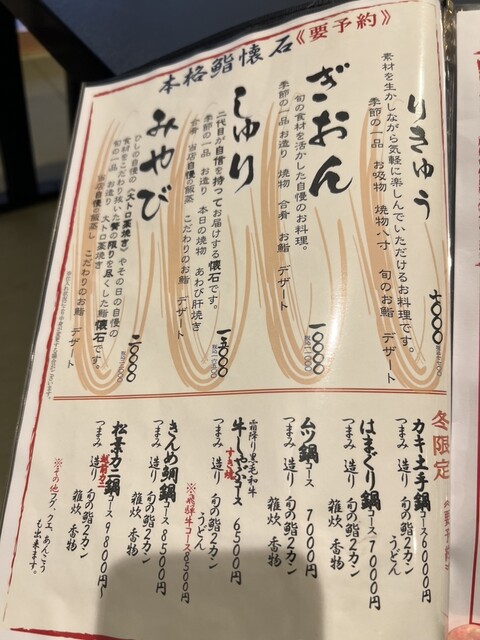 本格鮨懐石《要予約》
りきゅう
素材を生かしながら気軽に楽しんでいただけるお料理です。
季節の一品 お吸物 焼物八寸 旬のお鮨 デザート
七〇〇〇
ぎおん
旬の食材を活かした自慢のお料理。
季節の一品 お造り 焼物 合肴 お鮨 デザート
一〇〇〇〇
しゅり
二代目が自信を持ってお届けする懐石です。
季節の一品 お造り 本日の焼物 あわび肝焼き
合肴 当店自慢の飯蒸 こだわりのお鮨 デザート
一五〇〇〇
みやび
ひしの自慢の《大トロ藁焼き》やその日の自慢の
食材をこだわり抜いた贅の限りを尽くした鮨懐石です。
旬の一品 お造り 大トロ藁焼き
当店自慢の飯蒸し こだわりのお鮨 デザート
冬限定
カキ土手鍋コース6000円
つまみ 造り 旬の鮨2カン
うどん
はまぐり鍋コース7000円
つまみ 造り 旬の鮨2カン
雑炊 香物
ムツ鍋コース 7000円
つまみ 造り 旬の鮨2カン
雑炊 香物
霜降り黒毛和牛
牛しゃぶコース 6500円
すき焼
つまみ 造り 旬の鮨2カン
うどん
※飛騨牛コース8500円
きんめ鯛鍋コース 8500円
つまみ 造り 旬の鮨2カン
雑炊 香物
松葉カニ鍋コース 9800円〜
越前カニ
つまみ 造り 旬の鮨2カン
雑炊 香物
※その他フグ、クエ、あんこう
も出来ます。